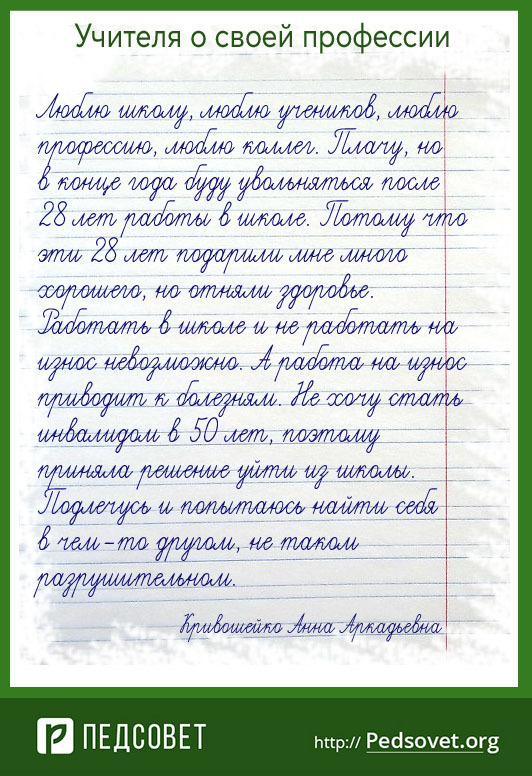 Учителя о своей профессии
Люблю школу, люблю учеников, люблю
профессию, люблю коллег. Плачу, но
в конце года буду увольняться после
28 лет работы в школе. Потому что
эти 28 лет подарили мне много
хорошего, но отняли здоровье.
Работать в школе и не работать на
износ невозможно. А работа на износ
приводит к болезням. Не хочу стать
инвалидом в 50 лет, поэтому
приняла решение уйти из школы.
Подлечусь и попытаюсь найти себя
в чем-то другом, не таком
разрушительном.
Кривошейко Анна Аркадьевна
ПЕДСОВЕТ
http:// Pedsovet.org